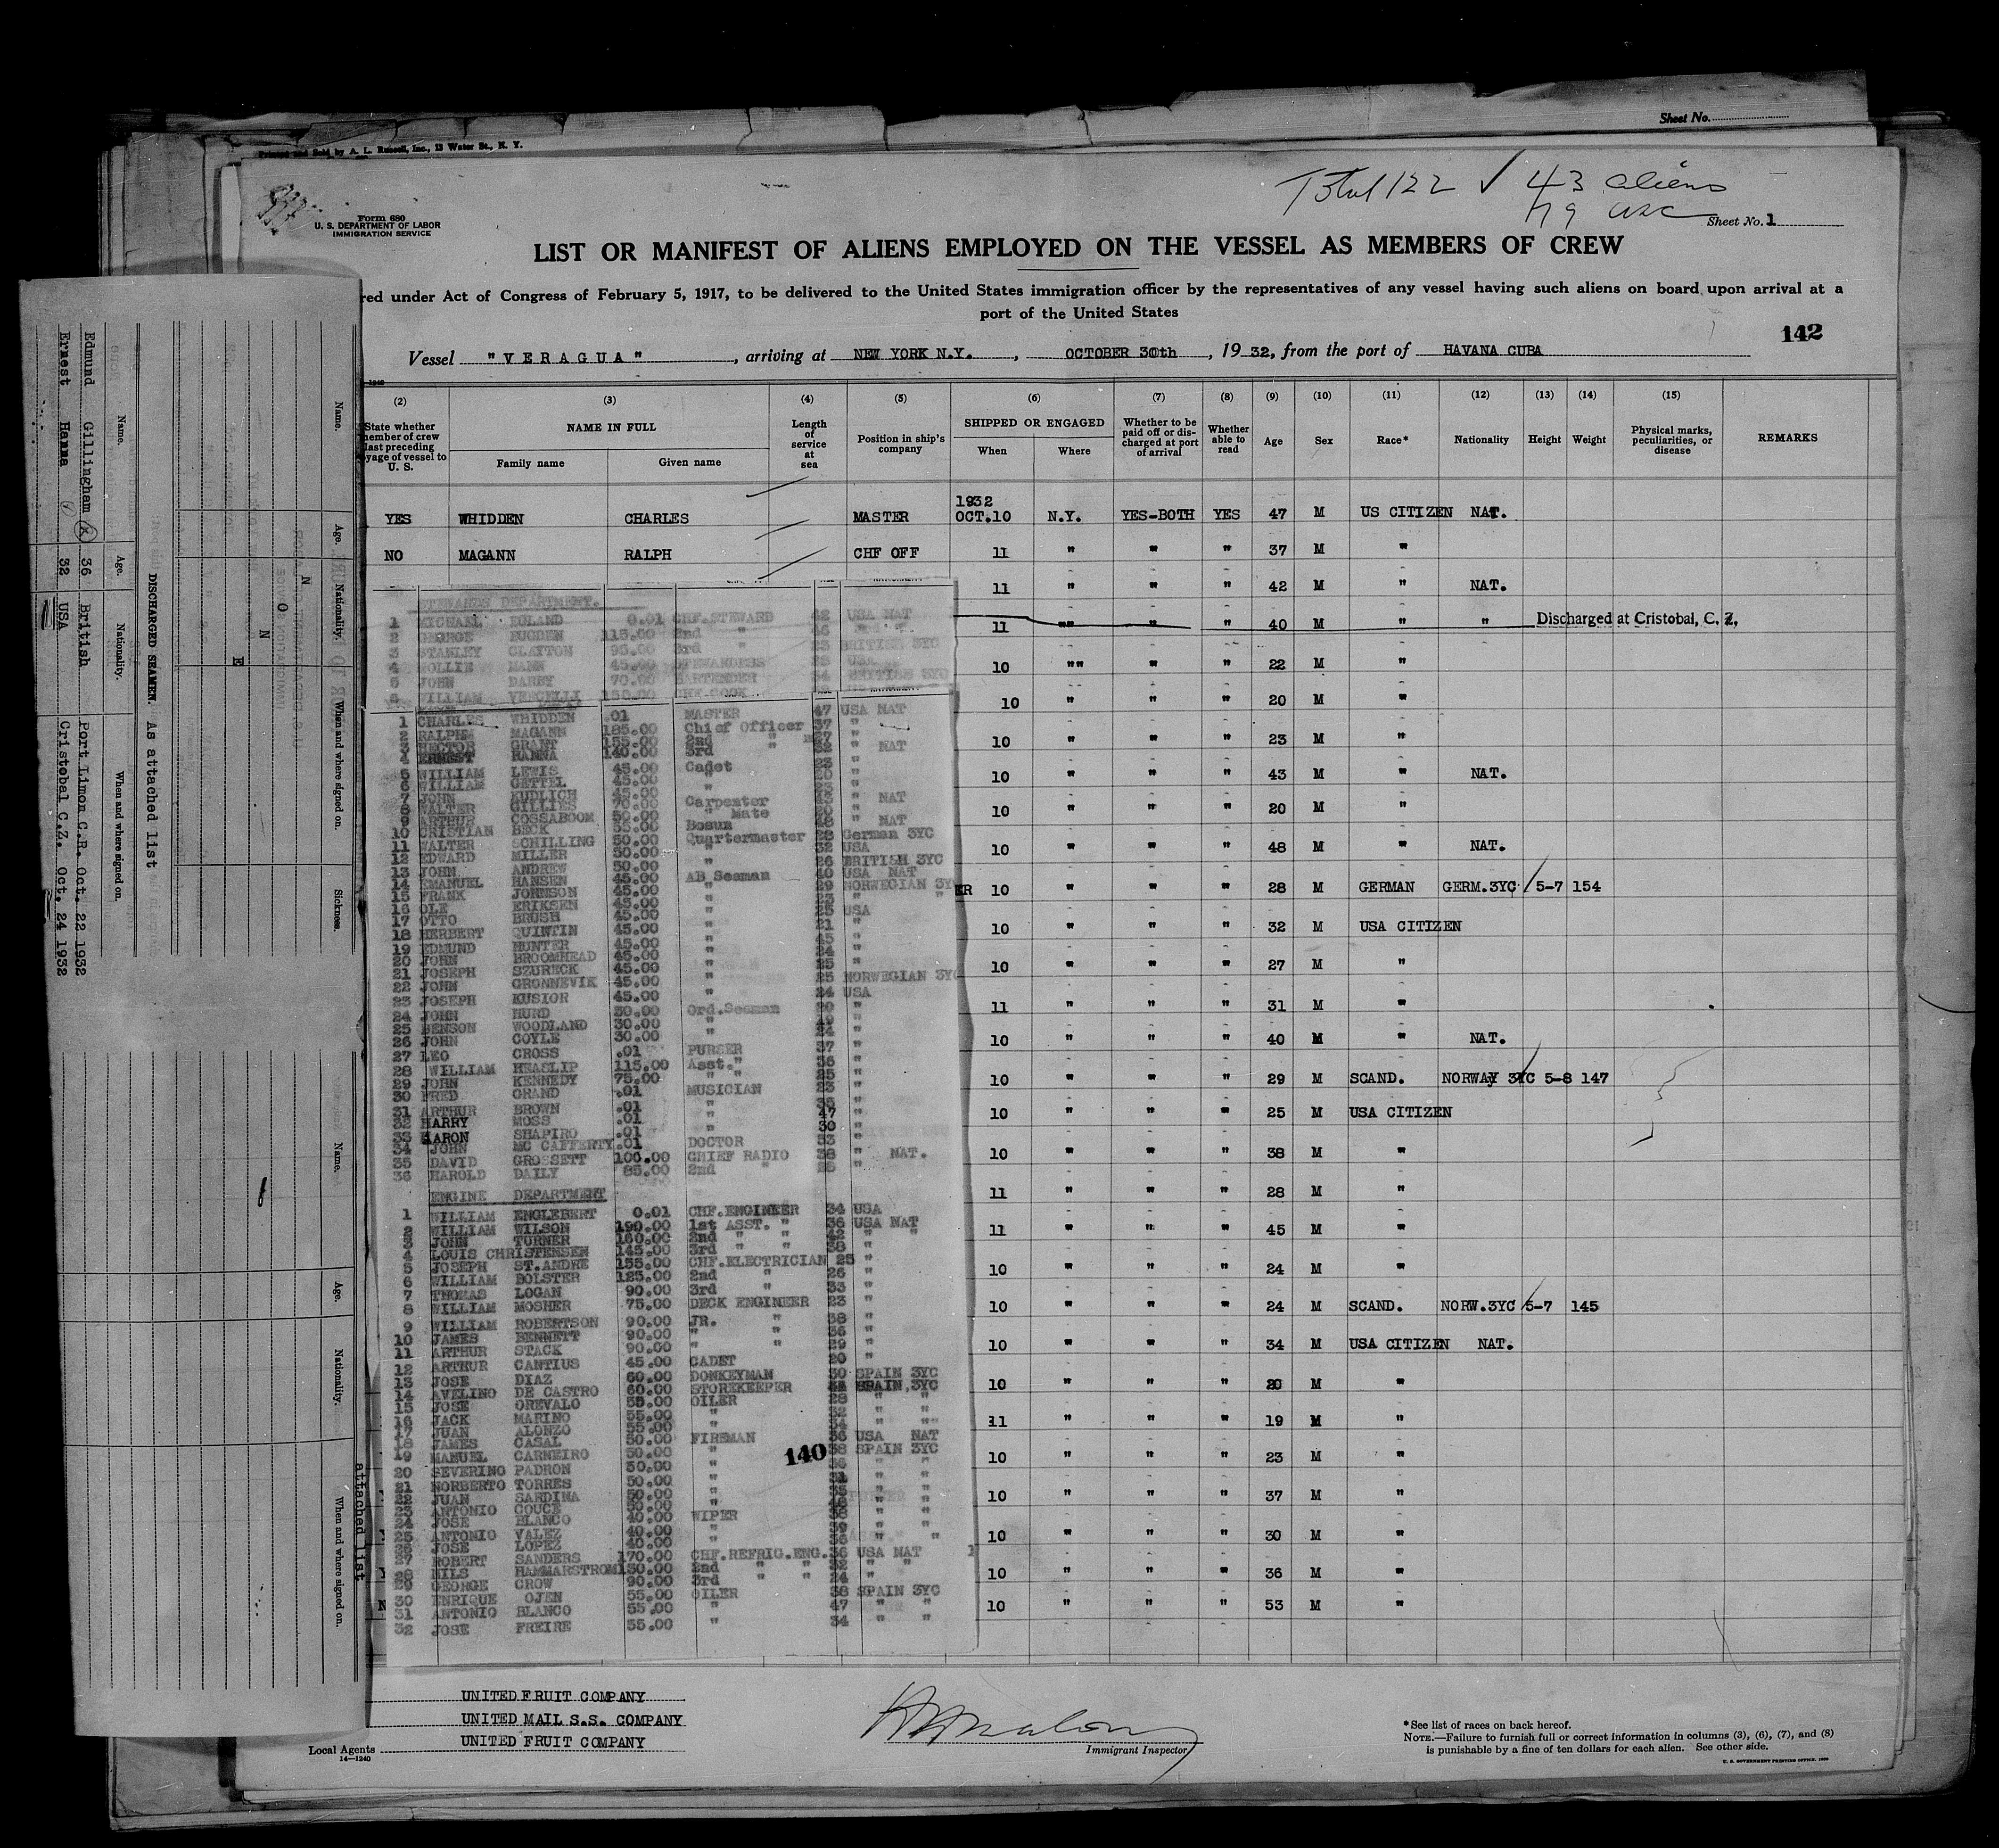 Sheet No.
Printed and Sold by A. L. Russell, Inc., 13 Water St., N. Y.
Total 122 ✓ 43 aliens
79 USC
Form 680
U. S. DEPARTMENT OF LABOR
IMMIGRATION SERVICE
Sheet No. 1
LIST OR MANIFEST OF ALIENS EMPLOYED ON THE VESSEL AS MEMBERS OF CREW
red under Act of Congress of February 5, 1917, to be delivered to the United States immigration officer by the representatives of any vessel having such aliens on board upon arrival at a
port of the United States
142
Vessel "VERAGUA", arriving at NEW YORK N.Y., OCTOBER 30th, 1932, from the port of HAVANA CUBA
(2) (3) (4) (5) (6) (7) (8) (9) (10) (11) (12) (13) (14) (15)
State whether member of crew last preceding voyage of vessel to U. S.
NAME IN FULL
Family name Given name
Length of service at sea
Position in ship's company
SHIPPED OR ENGAGED
When Where
Whether to be paid off or discharged at port of arrival
Whether able to read
Age Sex Race* Nationality Height Weight
Physical marks, peculiarities, or disease
REMARKS
1932
YES WHIDDEN CHARLES MASTER OCT.10 N.Y. YES-BOTH YES 47 M US CITIZEN NAT.
NO MAGANN RALPH CHF OFF 11 " " " 37 M "
11 " " " 42 M " NAT.
11 "" " " 40 M " " Discharged at Cristobal, C. Z,
10 "" " " 22 M "
10 " " " 20 M "
10 " " " 23 M "
10 " " " 43 M " NAT.
10 " " " 20 M "
10 " " " 48 M " NAT.
ER 10 " " " 28 M GERMAN GERM.3YC 5-7 154
10 " " " 32 M USA CITIZEN
10 " " " 27 M "
11 " " " 31 M "
10 " " " 40 M " NAT.
10 " " " 29 M SCAND. NORWAY 3YC 5-8 147
10 " " " 25 M USA CITIZEN
10 " " " 38 M "
11 " " " 28 M "
11 " " " 45 M "
10 " " " 24 M "
10 " " " 24 M SCAND. NORW.3YC 5-7 145
10 " " " 34 M USA CITIZEN NAT.
10 " " " 20 M "
11 " " " 19 M "
10 " " " 23 M "
10 " " " 37 M "
10 " " " 30 M "
10 " " " 36 M "
10 " " " 53 M "
STEWARDS DEPARTMENT.
1 MICHAEL BOLAND 0.01 CHF.STEWARD 42 USA NAT
2 GEORGE 115.00 2nd " 46 " "
3 STANLEY CLAYTON 95.00 3rd " 23 BRITISH 3YC
4 MOLLIE MANN 45.00 STEWARDESS USA
5 JOHN DANBY 70.00 BARTENDER 34 BRITISH 3YC
6 WILLIAM VERCELLI 150.00 CHF.COOK
1 CHARLES WHIDDEN .01 MASTER 47 USA NAT
2 RALPH MAGANN 185.00 Chief Officer 37 "
3 HECTOR GRANT 155.00 2nd " "
4 ERNEST HANNA 140.00 3rd " " NAT
5 WILLIAM LEWIS 45.00 Cadet 23 "
6 WILLIAM GETTEL 45.00 " 20 "
7 JOHN KUDLICH 45.00 " 23 "
8 WALTER GILLIES 70.00 Carpenter 43 " NAT
9 ARTHUR COSSABOOM 50.00 " Mate 20 "
10 CRISTIAN BECK 55.00 Bosun 48 " NAT
11 WALTER SCHILLING 50.00 Quartermaster 28 German 3YC
12 EDWARD MILLER 50.00 " 32 USA
13 JOHN ANDREW 50.00 " 26 BRITISH 3YC
14 EMANUEL HANSEN 45.00 AB Seaman 40 USA NAT
15 FRANK JOHNSON 45.00 " 29 NORWEGIAN 3Y
16 OLE ERIKSEN 45.00 " 23 " "
17 OTTO BRUSH 45.00 " 25 USA
18 HERBERT QUINTIN 45.00 " 21 "
19 EDMUND HUNTER 45.00 " 45 "
20 JOHN BROOMHEAD 45.00 " 24 "
21 JOSEPH SZURECK 45.00 " 25 "
22 JOHN GRONNEVIK 45.00 " 25 NORWEGIAN 3YC
23 JOSEPH KUSIOR 45.00 " 24 USA
24 JOHN HURD 30.00 Ord.Seaman 20 "
25 BENSON WOODLAND 30.00 " 19 "
26 JOHN COYLE 30.00 " 24 "
27 LEO CROSS .01 PURSER 37 "
28 WILLIAM HEASLIP 115.00 Asst." 36 "
29 JOHN KENNEDY 75.00 " " 25 "
30 FRED GRAND .01 MUSICIAN 23 "
31 ARTHUR BROWN .01 " 35 "
32 HARRY MOSS .01 " 47 "
33 AARON SHAPIRO .01 " 30 "
34 JOHN MC CAFFERTY .01 DOCTOR 53 "
35 DAVID GROSSETT 100.00 CHIEF RADIO 38 " NAT.
36 HAROLD DAILY 85.00 2nd " 28 "
ENGINE DEPARTMENT
1 WILLIAM ENGLEBERT 0.01 CHF.ENGINEER 34 USA
2 WILLIAM WILSON 190.00 1st ASST. " 36 USA NAT
3 JOHN TURNER 160.00 2nd " " 42 " "
4 LOUIS CHRISTENSEN 145.00 3rd " " 38 "
5 JOSEPH ST.ANDRE 155.00 CHF.ELECTRICIAN 25 "
6 WILLIAM BOLSTER 125.00 2nd " 26 "
7 THOMAS LOGAN 90.00 3rd " 33 "
8 WILLIAM MOSHER 75.00 DECK ENGINEER 23 "
9 WILLIAM ROBERTSON 90.00 JR. " 38 "
10 JAMES BENNETT 90.00 " " 36 "
11 ARTHUR STACK 90.00 " " 29 "
12 ARTHUR CANTIUS 45.00 CADET 20 "
13 JOSE DIAZ 60.00 DONKEYMAN 30 SPAIN 3YC
14 AVELINO DE CASTRO 60.00 STOREKEEPER SPAIN 3YC
15 JOSE OREVALO 55.00 OILER 28 " "
16 JACK MARINO 55.00 " 32 " "
17 JUAN ALONZO 55.00 " 34 " "
18 JAMES CASAL 50.00 FIREMAN 36 USA NAT
19 MANUEL CARNEIRO 50.00 " 38 SPAIN 3YC
140
20 SEVERINO PADRON 50.00 " 36 " "
21 NORBERTO TORRES 50.00 " 31 " "
22 JUAN SARDINA 50.00 " " "
23 ANTONIO COUCE 50.00 " " "
24 JOSE BLANCO 40.00 WIPER 38 " "
25 ANTONIO VALEZ 40.00 " 39 " "
26 JOSE LOPEZ 40.00 " " "
27 ROBERT SANDERS 170.00 CHF.REFRIG.ENG. 36 USA NAT
28 NILS HAMMARSTROM 130.00 2nd " " 32 " "
29 GEORGE CROW 90.00 3rd " " 24 "
30 ENRIQUE OJEN 55.00 OILER 38 SPAIN 3YC
31 ANTONIO BLANCO 55.00 " 47 " "
32 JOSE FREIRE 55.00 " 34 " "
DISCHARGED SEAMEN. As attached list
Name. Age. Nationality. When and where signed on.
Edmund Gillingham 36 British Port Limon C.R. Oct. 22 1932
Ernest Hanna 32 USA Cristobal C.Z. Oct. 24 1932
Name. Age. Nationality. When and where signed on. Sickness.
NONE
Name. Age. Nationality. When and where signed on.
attached list
UNITED FRUIT COMPANY
UNITED MAIL S.S. COMPANY
Local Agents UNITED FRUIT COMPANY
14-1240
Immigrant Inspector
*See list of races on back hereof.
NOTE.—Failure to furnish full or correct information in columns (3), (6), (7), and (8)
is punishable by a fine of ten dollars for each alien. See other side.
U. S. GOVERNMENT PRINTING OFFICE